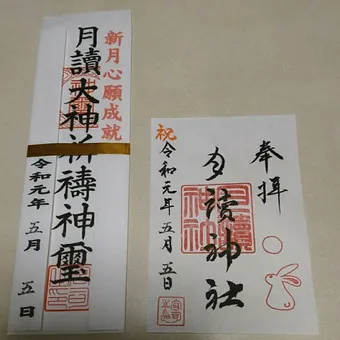 新月心願成就
月讀大神祈禱神璽
令和元年 五月 五日
奉拝
月讀神社
祝
令和元年五月五日